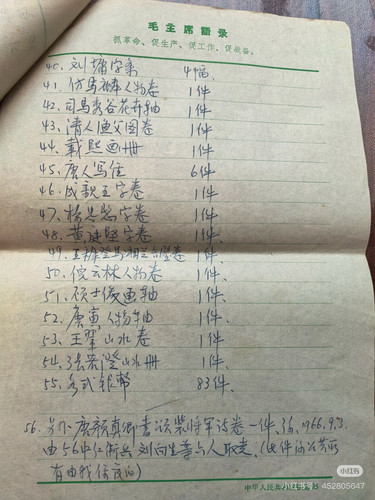 毛主席語录
抓革命、促生产、促工作、促战备。
40. 刘墉字条 4幅.
41. 仿马麟人物卷 1件
42. 司马秀谷花卉轴 1件
43. 清人渔父图卷 1件
44. 戴熙画册 1件
45. 唐人写佳 6件
46. 成亲王字卷 1件
47. 杨忠愍字卷 1件
48. 黄庭坚字卷 1件
49. 王 1件、
50. 倪云林人物卷 1件、
51. 顾士俊画轴 1件.
52. 唐寅人物轴 1件、
53. 王翚山水卷 1件
54. 张若澄山水册 1件
55. 各式银币 83件、
56. 另外唐颜真卿书颂裴将军诗卷一件、 1966.9.3.
由56中仁断云 刘向生等人取走,(此件
有由我信 )
中华人民共和
小红书
小红书号 452805647